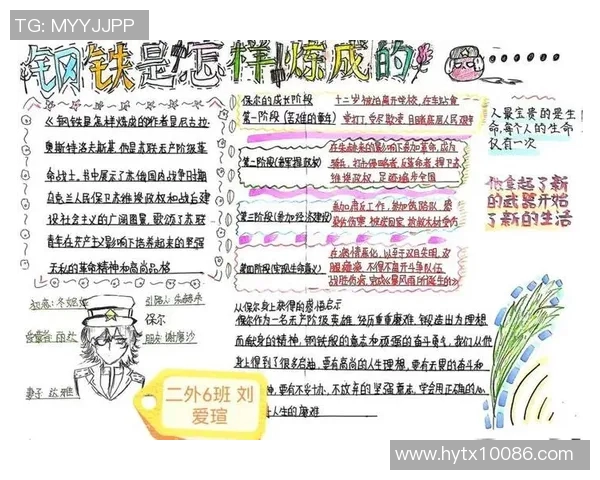 TG: MYYJJPP
钢铁是怎样炼成的
《钢铁是怎样炼成的》作者是尼古拉
奥斯特洛夫斯基,他是苏联无产阶级革
命战士,书中展示了苏俄国内战争时期
乌克兰人民保卫苏维埃政权和战后建
设社会主义的广阔图景,歌颂了苏联
青年在共产主义影响下培养起来的坚强
无私的革命精神和高尚品格
保尔的成长阶段
第一阶段(苦难的童年)
十二岁被迫离开学校,在车站当
童工,受尽欺凌,目睹底层人民艰辛
第二阶段
在朱赫来的影响下参加革命,成为
骑兵,打击侵略者,反革命者,捍卫苏
维埃政权,足迹遍步全国
第三阶段(参加经济建设)
参加肃反工作,参加筑路队
第四阶段(实现生命意义)
在病情恶化,以至于双目失明,双
人最宝贵的是生
命,每个人的生命
仅有一次
他拿起了新
的武器开始
了新的生活
初恋:冬妮娅
引路人 朱赫来
保尔
朋友 谢廖沙
妻子 达雅
从保尔身上获得的感悟启示
保尔作为一名无产阶级英雄,经历重重磨难,锻造出为理想
而献身的精神,钢铁般的意志和顽强的奋斗勇气,我们从他
身上得到了很多启迪,要有高尚的人生理想,要有无畏的奋斗和
精神,要有不妥协,不放弃的坚强意志,学会用正确的
人生的磨难
二外6班 刘
爱瑄
www.hytx10086.com